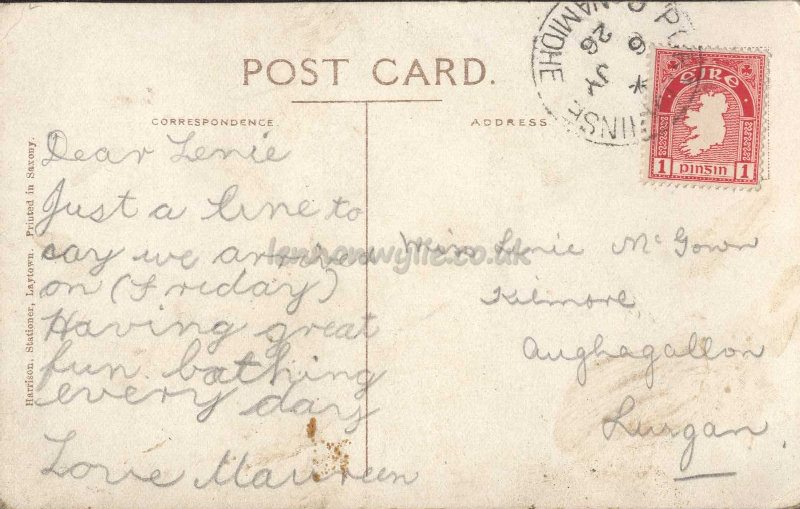 POST CARD.
CORRESPONDENCE.
Dear Lenie
Just a line to
say we arrived
on (Friday)
Having great
fun bathing
every day
Love Maureen
ADDRESS
Miss Lenie McGown
Kilmore
Aughagallon
Lurgan
ÉIRE
1 PINSIN 1
NAMIDHE
26 JY
lennonwylie.co.uk
Harrison. Stationer, Laytown. Printed in Saxony.